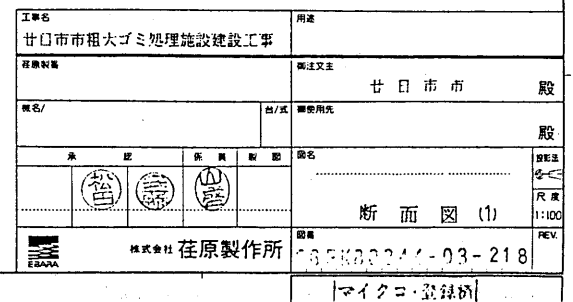 工事名
廿日市市粗大ゴミ処理施設建設工事
用途
荏原製番
御注文主
廿日市市 殿
機名/
台/式
御使用先
殿
承認
係員
製図
図名
投影法
松田
断面図 (1)
尺度
1:100
EBARA
株式会社 荏原製作所
図番
-03-218
REV.
マイクロ・登録済